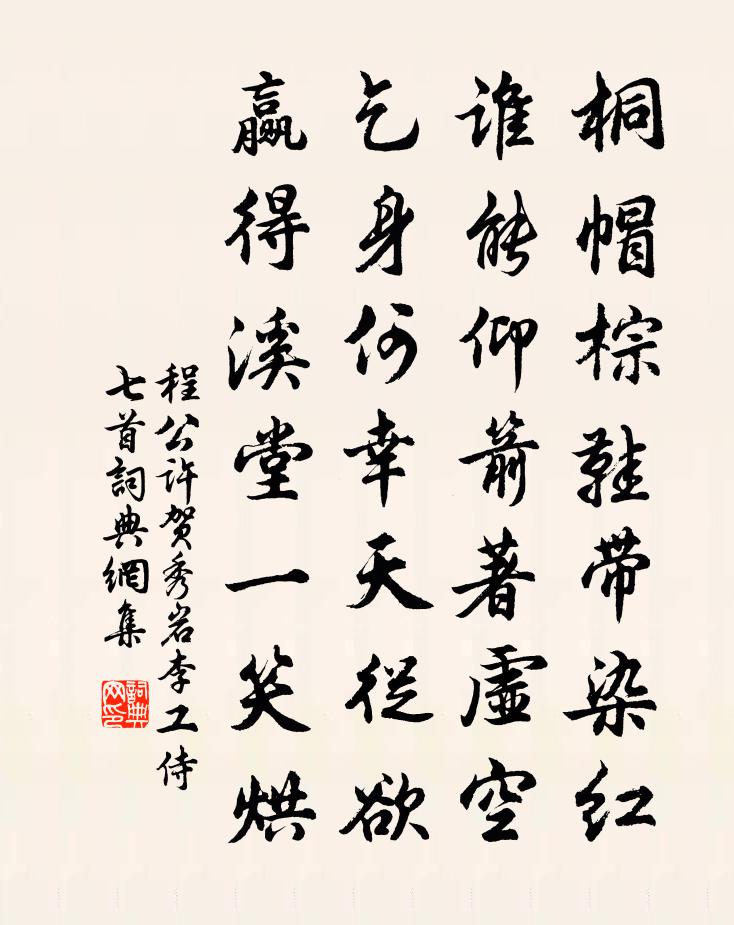 桐帽棕鞋带染红
谁能仰箭著虚空
乞身何幸天从欲
赢得溪堂一笑烘
程公许贺秀岩李工侍
七首詞典網集
詞典网印